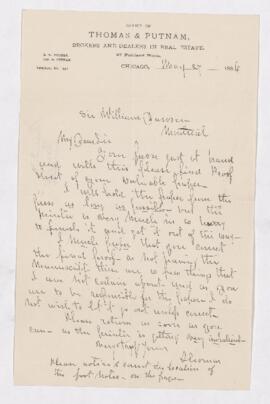 OFFICE OF
THOMAS & PUTNAM,
BROKERS AND DEALERS IN REAL ESTATE,
CHICAGO, May 27 188
Sir William Dawson
Montreal
My Dear Sir
Your favor just at hand
and with this please find Proof
sheet of your valuable paper.
I will hold the paper from the
press as long as possible but the
printer is very much in a hurry
to finish it and get it out of the way.
I much prefer that you correct
the final proof as not having the
Manuscript there are a few things that
I am not certain about and as you
are to be responsible for the paper I do
not wish it to go out until correct
Please return as soon as you
can as the printer is getting very impatient
Very truly yours
Thomas
Please notice & correct the location of
the foot notes on the pages